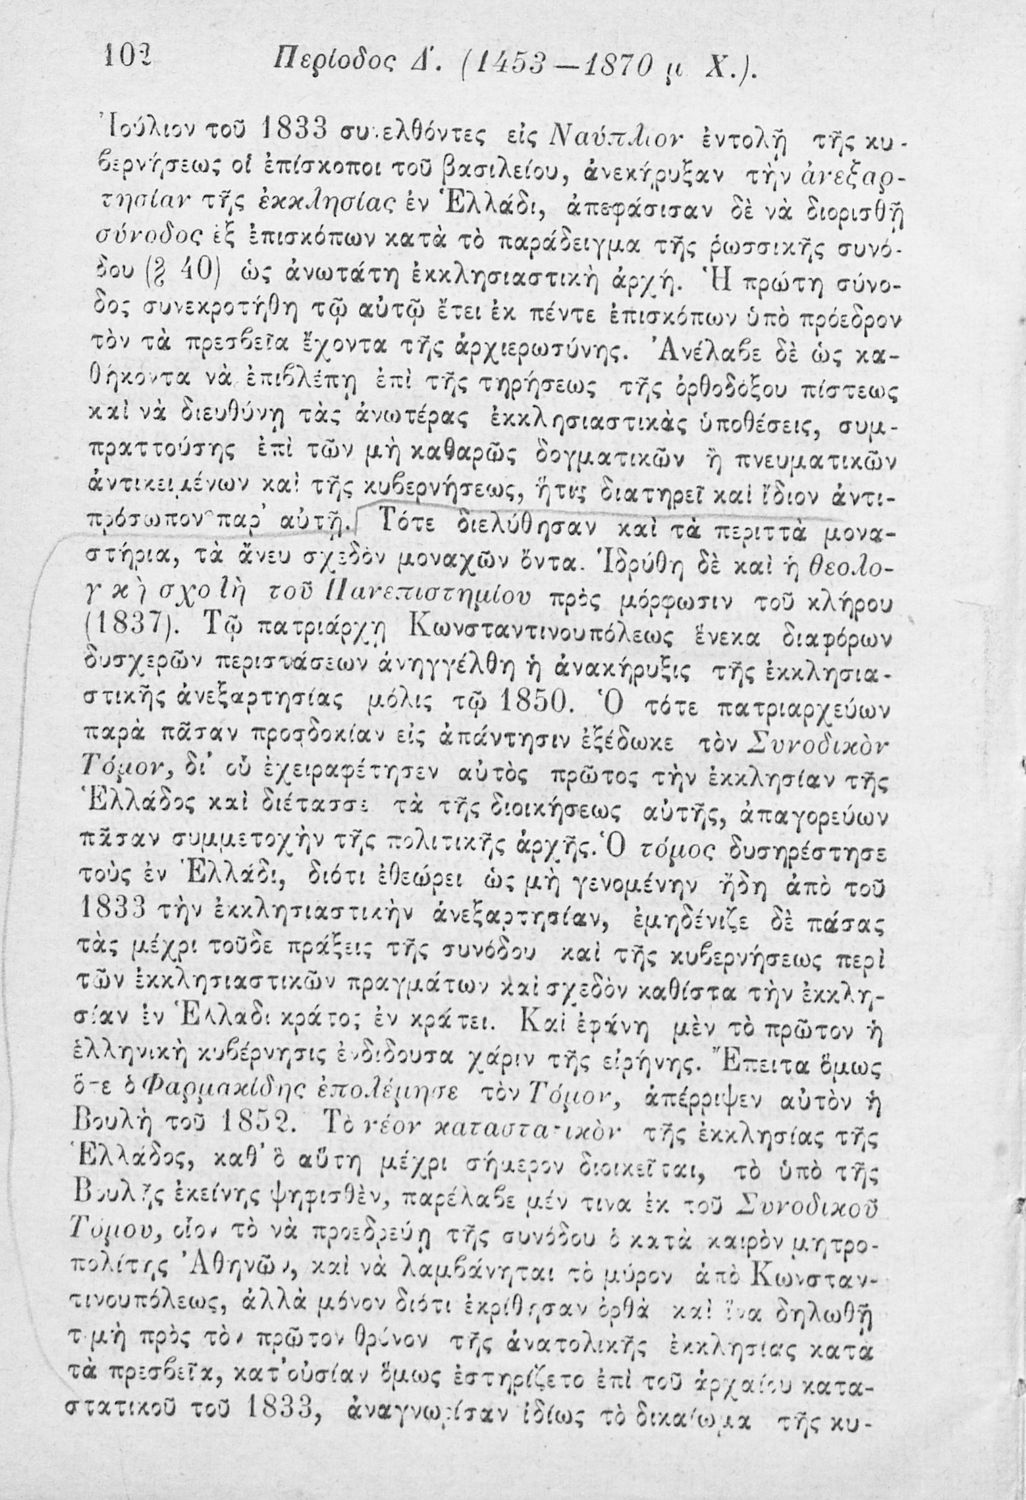 102 Περίοδος Δ΄. (1453—1870 μ Χ.).
Ἰούλιον τοῦ 1833 συνελθόντες εἰς Ναύπλιον ἐντολῇ τῆς κυ-
βερνήσεως οἱ ἐπίσκοποι τοῦ βασιλείου, ἀνεκήρυξαν τὴν ἀνεξαρ-
τησίαν τῆς ἐκκλησίας ἐν Ἑλλάδι, ἀπεφάσισαν δὲ νὰ διορισθῇ
σύνοδος ἐξ ἐπισκόπων κατὰ τὸ παράδειγμα τῆς ῥωσσικῆς συνό-
δου (§ 40) ὡς ἀνωτάτη ἐκκλησιαστικὴ ἀρχή. Ἡ πρώτη σύνο-
δος συνεκροτήθη τῷ αὐτῷ ἔτει ἐκ πέντε ἐπισκόπων ὑπὸ πρόεδρον
τὸν τὰ πρεσβεῖα ἔχοντα τῆς ἀρχιερωσύνης. Ἀνέλαβε δὲ ὡς κα-
θήκοντα νὰ ἐπιβλέπῃ ἐπὶ τῆς τηρήσεως τῆς ὀρθοδόξου πίστεως
καὶ νὰ διευθύνῃ τὰς ἀνωτέρας ἐκκλησιαστικὰς ὑποθέσεις, συμ-
πραττούσης ἐπὶ τῶν μὴ καθαρῶς δογματικῶν ἢ πνευματικῶν
ἀντικειμένων καὶ τῆς κυβερνήσεως, ἥτις διατηρεῖ καὶ ἴδιον ἀντι-
πρόσωπον παρ' αὐτῇ. Τότε διελύθησαν καὶ τὰ περιττὰ μονα-
στήρια, τὰ ἄνευ σχεδὸν μοναχῶν ὄντα. Ἱδρύθη δὲ καὶ ἡ θεολο-
γ κὴ σχολὴ τοῦ Πανεπιστημίου πρὸς μόρφωσιν τοῦ κλήρου
(1837). Τῷ πατριάρχῃ Κωνσταντινουπόλεως ἕνεκα διαφόρων
δυσχερῶν περιστάσεων ἀνηγγέλθη ἡ ἀνακήρυξις τῆς ἐκκλησια-
στικῆς ἀνεξαρτησίας μόλις τῷ 1850. Ὁ τότε πατριαρχεύων
παρὰ πᾶσαν προσδοκίαν εἰς ἀπάντησιν ἐξέδωκε τὸν Συνοδικὸν
Τόμον, δι' οὗ ἐχειραφέτησεν αὐτὸς πρῶτος τὴν ἐκκλησίαν τῆς
Ἑλλάδος καὶ διέτασσε τὰ τῆς διοικήσεως αὐτῆς, ἀπαγορεύων
πᾶσαν συμμετοχὴν τῆς πολιτικῆς ἀρχῆς. Ὁ τόμος δυσηρέστησε
τοὺς ἐν Ἑλλάδι, διότι ἐθεώρει ὡς μὴ γενομένην ἤδη ἀπὸ τοῦ
1833 τὴν ἐκκλησιαστικὴν ἀνεξαρτησίαν, ἐμηδένιζε δὲ πάσας
τὰς μέχρι τοῦδε πράξεις τῆς συνόδου καὶ τῆς κυβερνήσεως περὶ
τῶν ἐκκλησιαστικῶν πραγμάτων καὶ σχεδὸν καθίστα τὴν ἐκκλη-
σίαν ἐν Ἑλλάδι κράτος ἐν κράτει. Καὶ ἐφάνη μὲν τὸ πρῶτον ἡ
ἑλληνικὴ κυβέρνησις ἐνδίδουσα χάριν τῆς εἰρήνης. Ἔπειτα ὅμως
ὅτε ὁ Φαρμακίδης ἐπολέμησε τὸν Τόμον, ἀπέρριψεν αὐτὸν ἡ
Βουλὴ τοῦ 1852. Τὸ νέον καταστατικὸν τῆς ἐκκλησίας τῆς
Ἑλλάδος, καθ' ὃ αὕτη μέχρι σήμερον διοικεῖται, τὸ ὑπὸ τῆς
Βουλῆς ἐκείνης ψηφισθὲν, παρέλαβε μέν τινα ἐκ τοῦ Συνοδικοῦ
Τόμου, οἷον τὸ νὰ προεδρεύῃ τῆς συνόδου ὁ κατὰ καιρὸν μητρο-
πολίτης Ἀθηνῶν, καὶ νὰ λαμβάνηται τὸ μύρον ἀπὸ Κωνσταν-
τινουπόλεως, ἀλλὰ μόνον διότι ἐκρίθησαν ὀρθὰ καὶ ἵνα δηλωθῇ
τιμὴ πρὸς τὸν πρῶτον θρόνον τῆς ἀνατολικῆς ἐκκλησίας κατὰ
τὰ πρεσβεῖα, κατ' οὐσίαν ὅμως ἐστηρίζετο ἐπὶ τοῦ ἀρχαίου κατα-
στατικοῦ τοῦ 1833, ἀναγνωρίσαν ἰδίως τὸ δικαίωμα τῆς κυ-